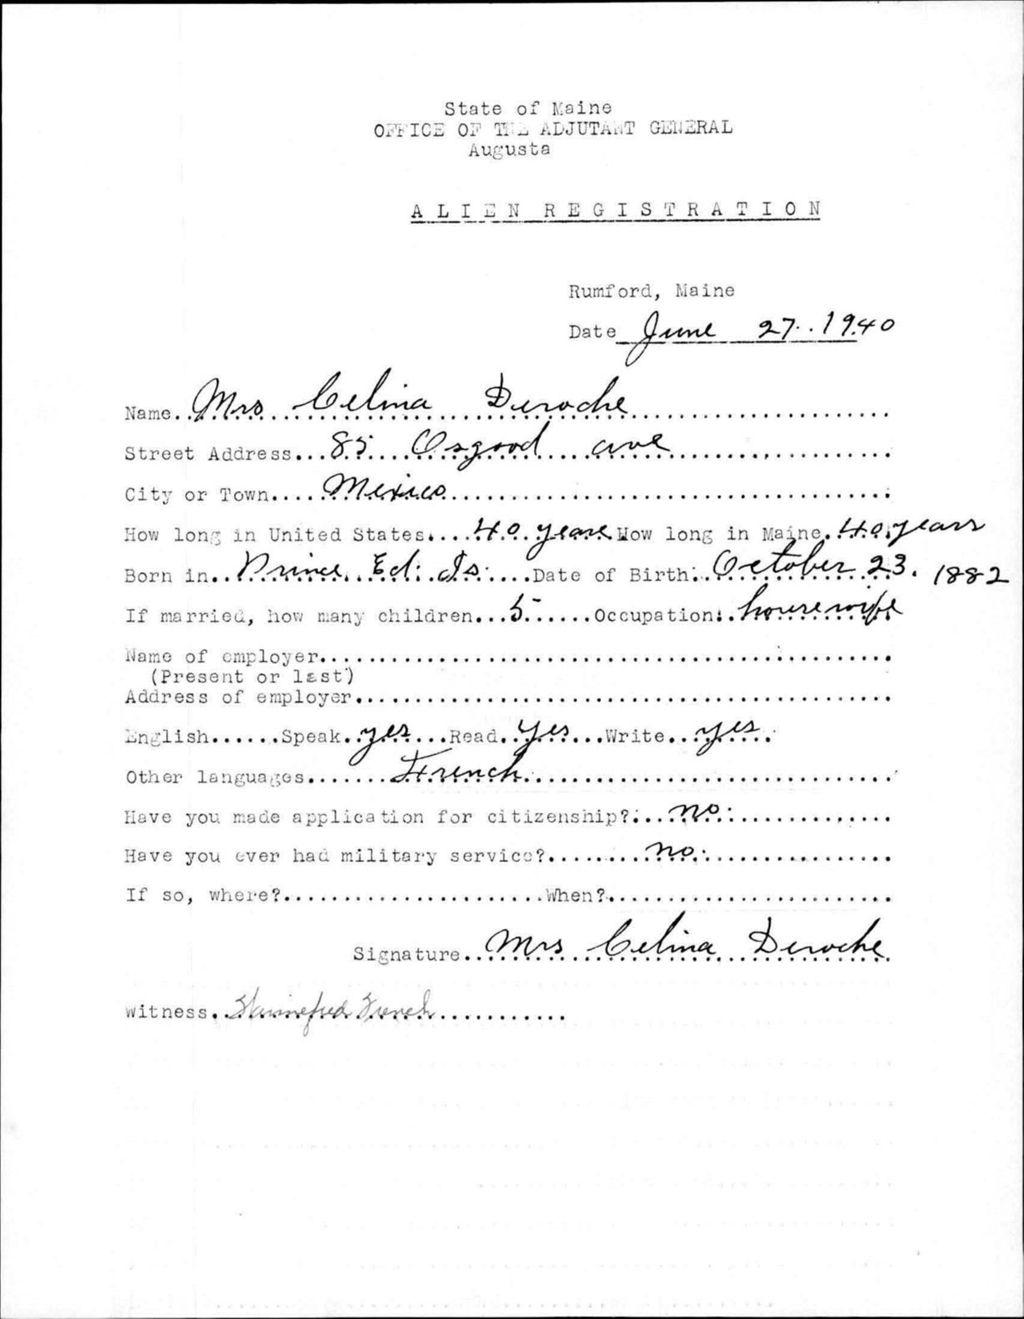 State of Maine
OFFICE OF THE ADJUTANT GENERAL
Augusta
ALIEN REGISTRATION
Rumford, Maine
Date June 27. 1940
Name Mrs Celina Deroche
Street Address 85 Osgood ave
City or Town Mexico
How long in United States 40 years How long in Maine 40 years
Born in Prince Ed. Is. Date of Birth October 23. 1882
If married, how many children 5 Occupation housewife
Name of employer
(Present or last)
Address of employer
English Speak yes Read Yes Write yes
Other languages French
Have you made application for citizenship? no
Have you ever had military service? no
If so, where? When?
Signature Mrs Celina Deroche
Witness French